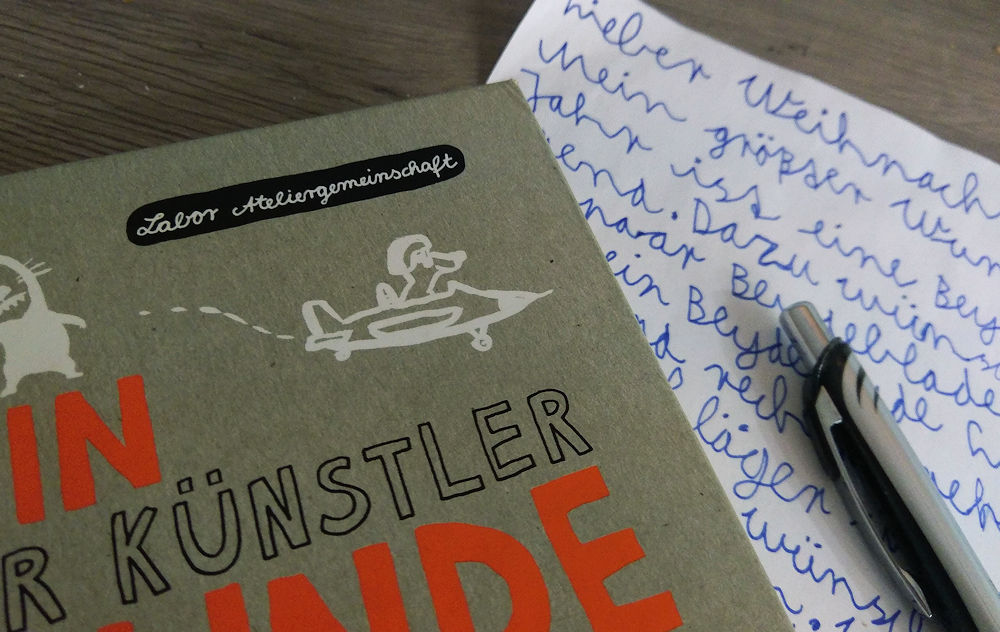 Labor Ateliergemeinschaft
IN
R KÜNSTLER
UNDE
Lieber Weihnach
Mein größer Wun
Jahr ist eine Bey
end. Dazu wünsc
paar Beyseblade
ein Beyde
rech de
läger
wünsch